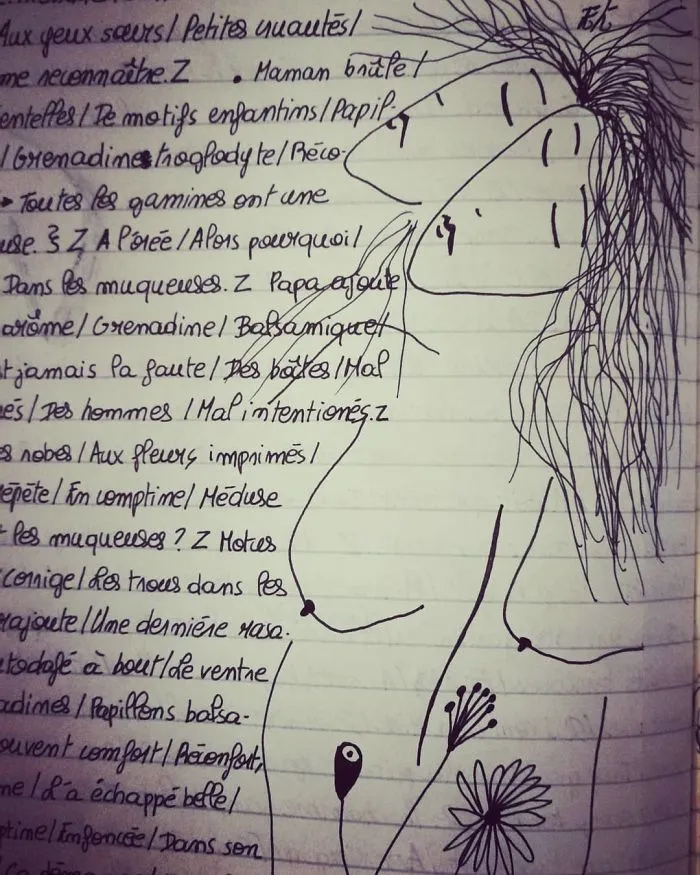 Aux yeux sœurs/Petites nuautés/
me reconnaître.Z • Maman brûle/
entelles/De motifs enfantins/Papil-
/Grenadine troglodyte/Réco-
Toutes les gamines ont une
use. Z A l'orée/Alors pourquoi/
Dans les muqueuses.Z Papa ajoute
arôme/Grenadine/Balsamique/
t jamais la faute/Des bâtes/Mal
és/Des hommes/Mal intentionés.Z
s robes/Aux fleurs imprimés/
épète/En comptine/Méduse
les muqueuses? Z Motus
corrige/Les trous dans les
rajoute/Une dernière rasa-
à bout/Le ventre
adines/Papillons balsa-
ouvent comfort/Réconfort,
ne/L'a échappé belle/
ptime/Enfoncée/Dans son